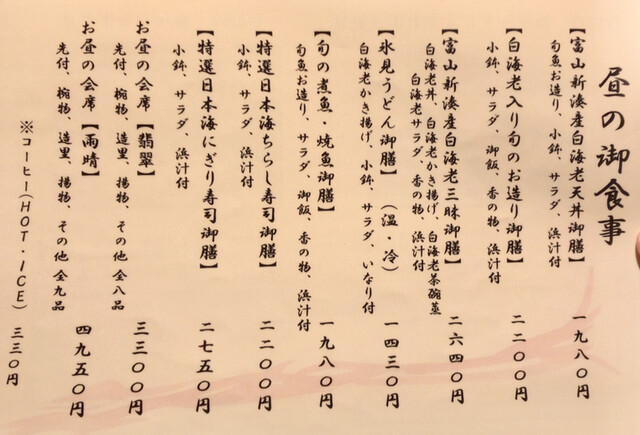 昼の御食事
【富山新湊産白海老天丼御膳】
旬魚お造り、小鉢、サラダ、浜汁付
一九八〇円
【白海老入り旬のお造り御膳】
小鉢、サラダ、御飯、香の物、浜汁付
二二〇〇円
【富山新湊産白海老三昧御膳】
白海老丼、白海老かき揚げ、白海老茶碗蒸
白海老サラダ、香の物、浜汁付
二六四〇円
【氷見うどん御膳】(温・冷)
白海老かき揚げ、小鉢、サラダ、いなり付
一四三〇円
【旬の煮魚・焼魚御膳】
旬魚お造り、サラダ、御飯、香の物、浜汁付
一九八〇円
【特選日本海ちらし寿司御膳】
小鉢、サラダ、浜汁付
二二〇〇円
【特選日本海にぎり寿司御膳】
小鉢、サラダ、浜汁付
二七五〇円
お昼の会席【翡翠】
先付、椀物、造里、揚物、その他 全八品
三三〇〇円
お昼の会席【雨晴】
先付、椀物、造里、揚物、その他 全九品
四九五〇円
※コーヒー(HOT・ICE) 三三〇円